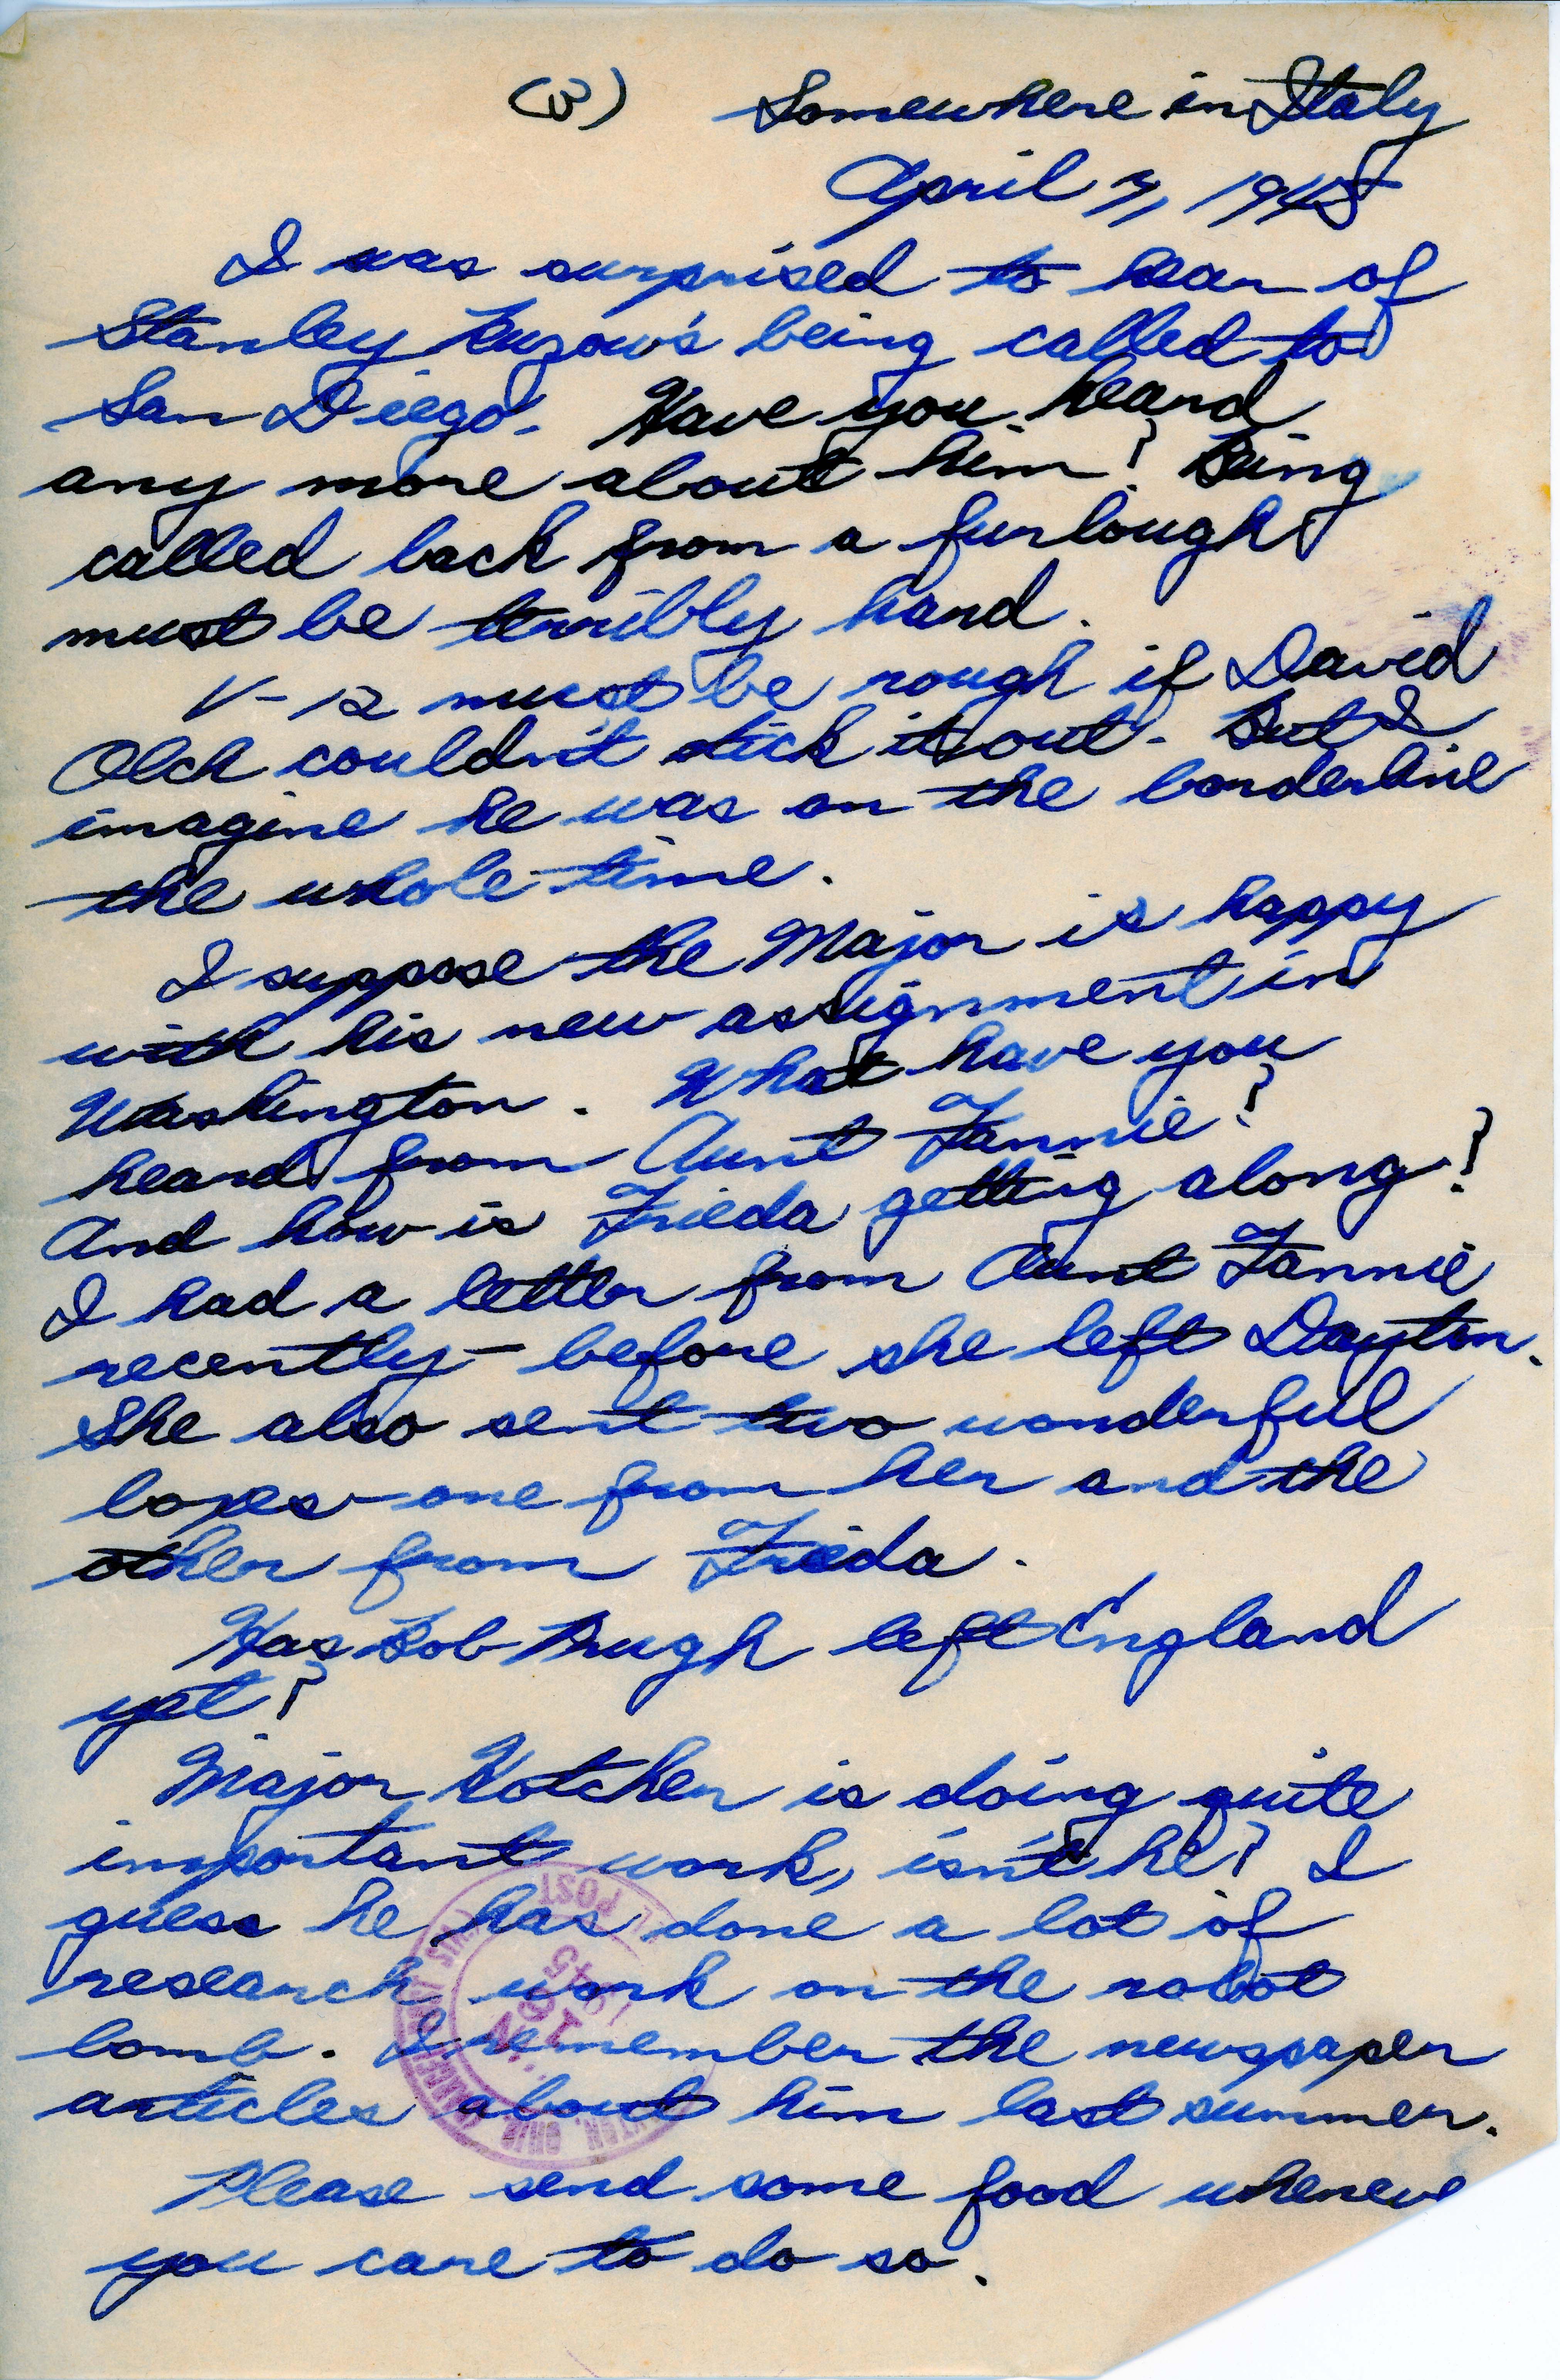 (3) Somewhere in Italy
April 7, 1945
I was surprised to hear of
Stanley Kuzow's being called to
San Diego. Have you heard
any more about him? Being
called back from a furlough
must be terribly hard.
V-12 must be rough if David
Olch couldn't stick it out. But I
imagine he was on the borderline
the whole time.
I suppose the Major is happy
with his new assignment in
Washington. What have you
heard from Aunt Fannie?
And how is Frieda getting along?
I had a letter from Aunt Fannie
recently - before she left Dayton.
She also sent two wonderful
boxes - one from her and the
other from Frieda.
Has Bob Pugh left England
yet?
Major Kotcher is doing quite
important work, isn't he? I
guess he has done a lot of
research work on the robot
bomb. I remember the newspaper
articles about him last summer.
Please send some food wheneve
you care to do so.
POST
1945
OHIO